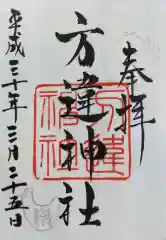 奉拝
方違神社
平成三十年三月二十五日
方違
神社